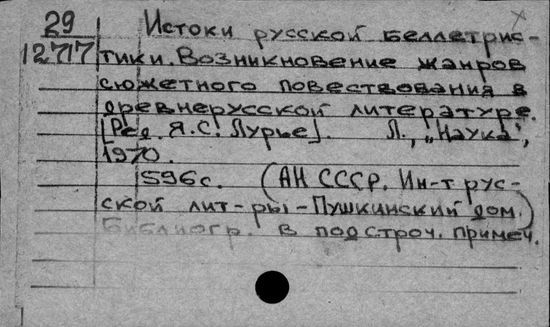 29 Истоки русской беллетрис-
12717 тики. Возникновение жанров
сюжетного повествования в
древнерусской литературе.
[Ред. Я.С. Лурье]. Л., „Наука",
1970.
596с. (АН СССР. Ин-т рус-
ской лит-ры-Пушкинский дом.)
Библиогр. в подстроч. примеч.